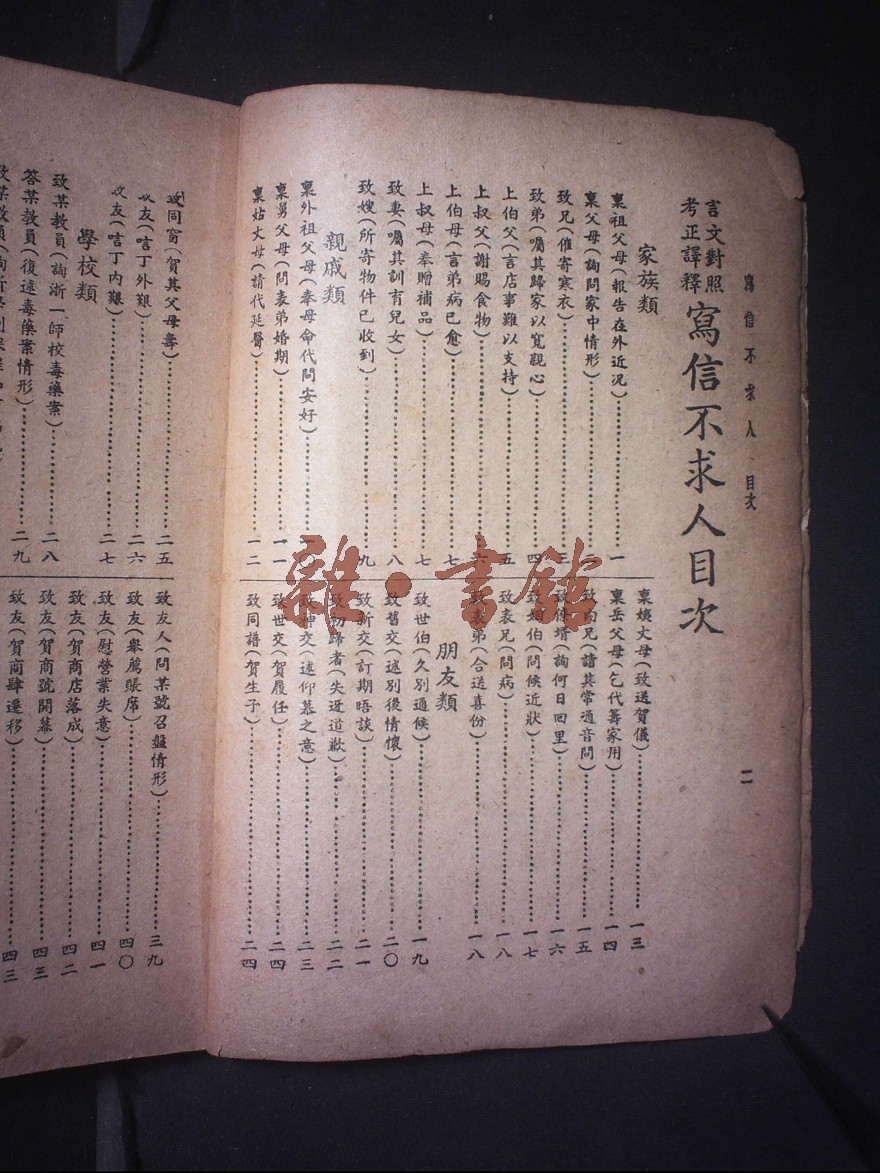 寫信不求人 目次
二
言文對照
考正譯釋
寫信不求人目次
家族類
稟祖父母(報告在外近況)一
稟父母(詢問家中情形)二
致兄(催寄寒衣)三
致弟(囑其歸家以寬親心)四
上伯父(言店事難以支持)五
上叔父(謝賜食物)六
上伯母(言弟病已愈)七
上叔母(奉贈補品)七
致妻(囑其訓育兒女)八
致嫂(所寄物件已收到)九
親戚類
稟外祖父母(奉母命代問安好)
稟舅父母(問表弟婚期)一一
稟姑丈母(請代延醫)一二
稟姨丈母(致送賀儀)一三
稟岳父母(乞代籌家用)一四
兄(請其常通音問)一五
致侄壻(詢何日回里)一六
致姻伯(問候近狀)一七
致表兄(問病)一八
致表弟(合送喜份)一八
朋友類
致世伯(久別通候)一九
致舊交(述別後情懷)二〇
致新交(訂期晤談)二一
致初歸者(失迓道歉)二二
致神交(述仰慕之意)二三
致世交(賀履任)二四
致同譜(賀生子)二四
致同窗(賀其父母壽)二五
致友(唁丁外艱)二六
致友(唁丁內艱)二七
學校類
致某教員(詢浙一師校毒藥案)二八
答某教員(復述毒藥案情形)二九
致某教員
致友人(問某號召盤情形)三九
致友(舉薦賬席)四〇
致友(慰營業失意)四一
致友(賀商店落成)四二
致友(賀商號開幕)四三
致友(賀商肆遷移)四三
雜·書館